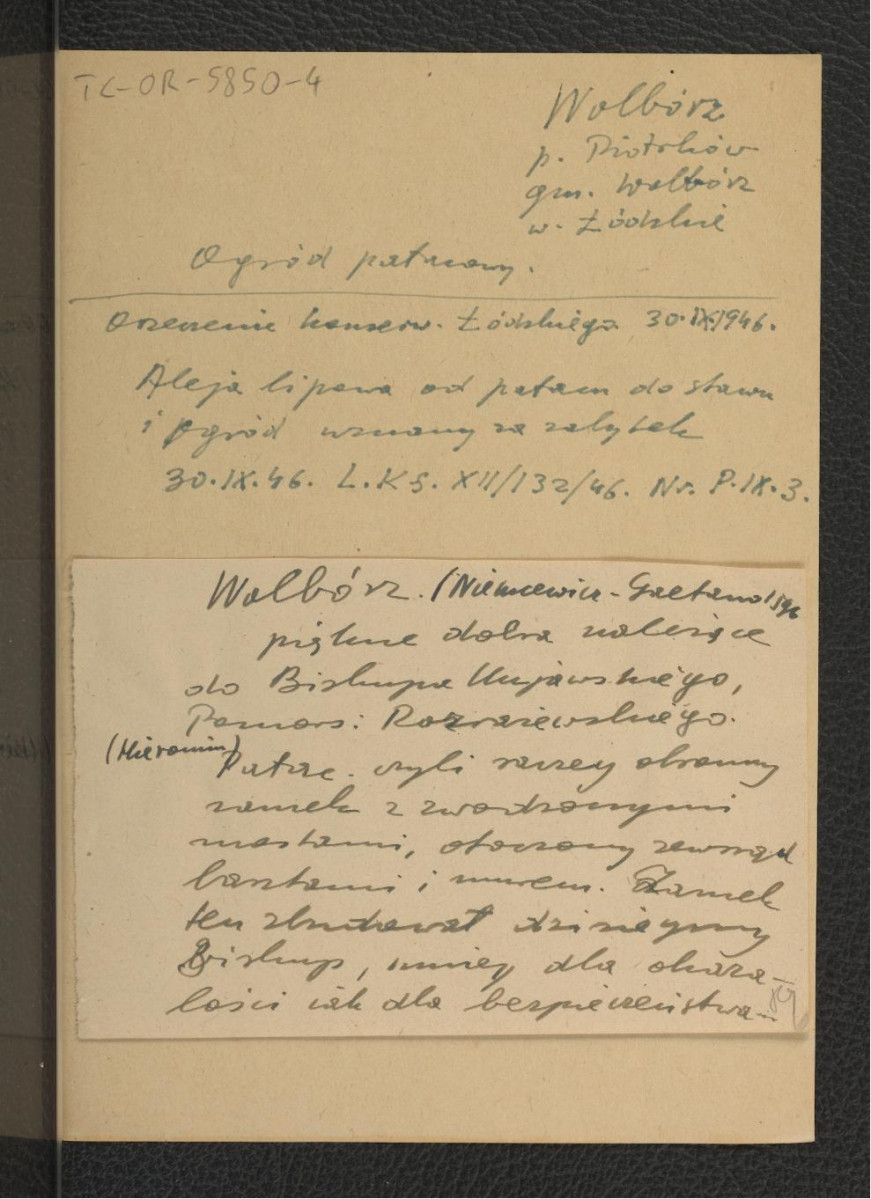 TC-OR-5850-4
Wolbórz
p. Piotrków
gm. Wolbórz
w. Łódzkie
Ogród pałacowy.
Orzeczenie konserw. Łódzkiego 30.IX.1946.
Aleja lipowa od pałacu do stawu
i ogród uznany za zabytek
30.IX.46. L.KS. XII/132/46. Nr. P.IX.3.
Wolbórz. (Niemcewicz - Gaetano 1596
piękne dobra należące
do Biskupa Kujawskiego,
Pomors: Rozrażewskiego.
(Hieronim)
Pałac. czyli raczey obronny
zamek z zwodzonymi
mostami, otoczony zewsząd
basztami i murem. Zamek
ten zbudował dzisieyszy
Biskup, mniey dla okaza-
łości iak dla bezpieczeństwa